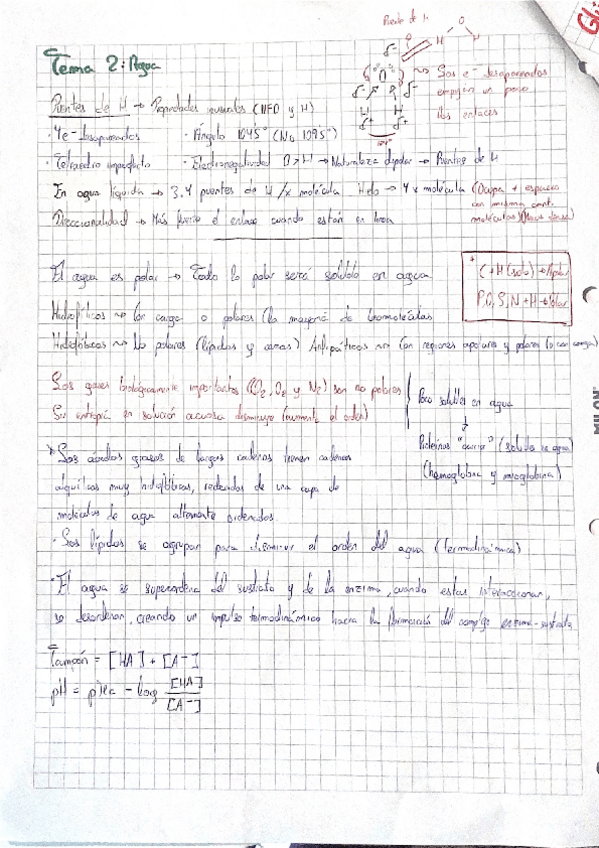 Puente de H
Tema 2: Agua
Los e⁻ desapareados
empujan un poco
los enlaces
Puentes de H → Propiedades inusuales (NFO y H)
· 4e⁻ desapareados · Ángulo 104'5° (No 109'5°)
· Tetraedro imperfecto · Electronegatividad O > H → Naturaleza dipolar → Puentes de H
En agua líquida → 3.4 puentes de H /x molécula Hielo → 4 x molécula (Ocupa + espacio
con misma cant.
moléculas)
Direccionalidad → Más fuerte el enlace cuando están en línea
El agua es polar → Todo lo polar será soluble en agua
C + H (solo) → Apolar
P,O,S,N + H → Polar
Hidrofílicos → Con carga o polares (la mayoría de biomoléculas
Hidrofóbicos → No polares (lípidos y ceras) Anfipáticos → Con regiones apolares y polares (o con carga)
Los gases biológicamente importantes (CO₂, O₂ y N₂) son no polares
Su entropía en solución acuosa disminuye (aumenta el orden)
Poco solubles en agua
↓
Proteínas (solubles en agua)
(hemoglobina y mioglobina)
Los ácidos grasos de largas cadenas tienen cadenas
alquílicas muy hidrofóbicas, rodeadas de una capa de
moléculas de agua altamente ordenados.
· Los lípidos se agrupan para disminuir el orden del agua (termodinámica)
· El agua se superordena del sustrato y de la enzima, cuando estas interaccionan,
se desordenan, creando un impulso termodinámico hacia la formación del complejo enzima-sustrato
Tampón = [HA] + [A⁻]
pH = pKa - log [HA]
[A⁻]